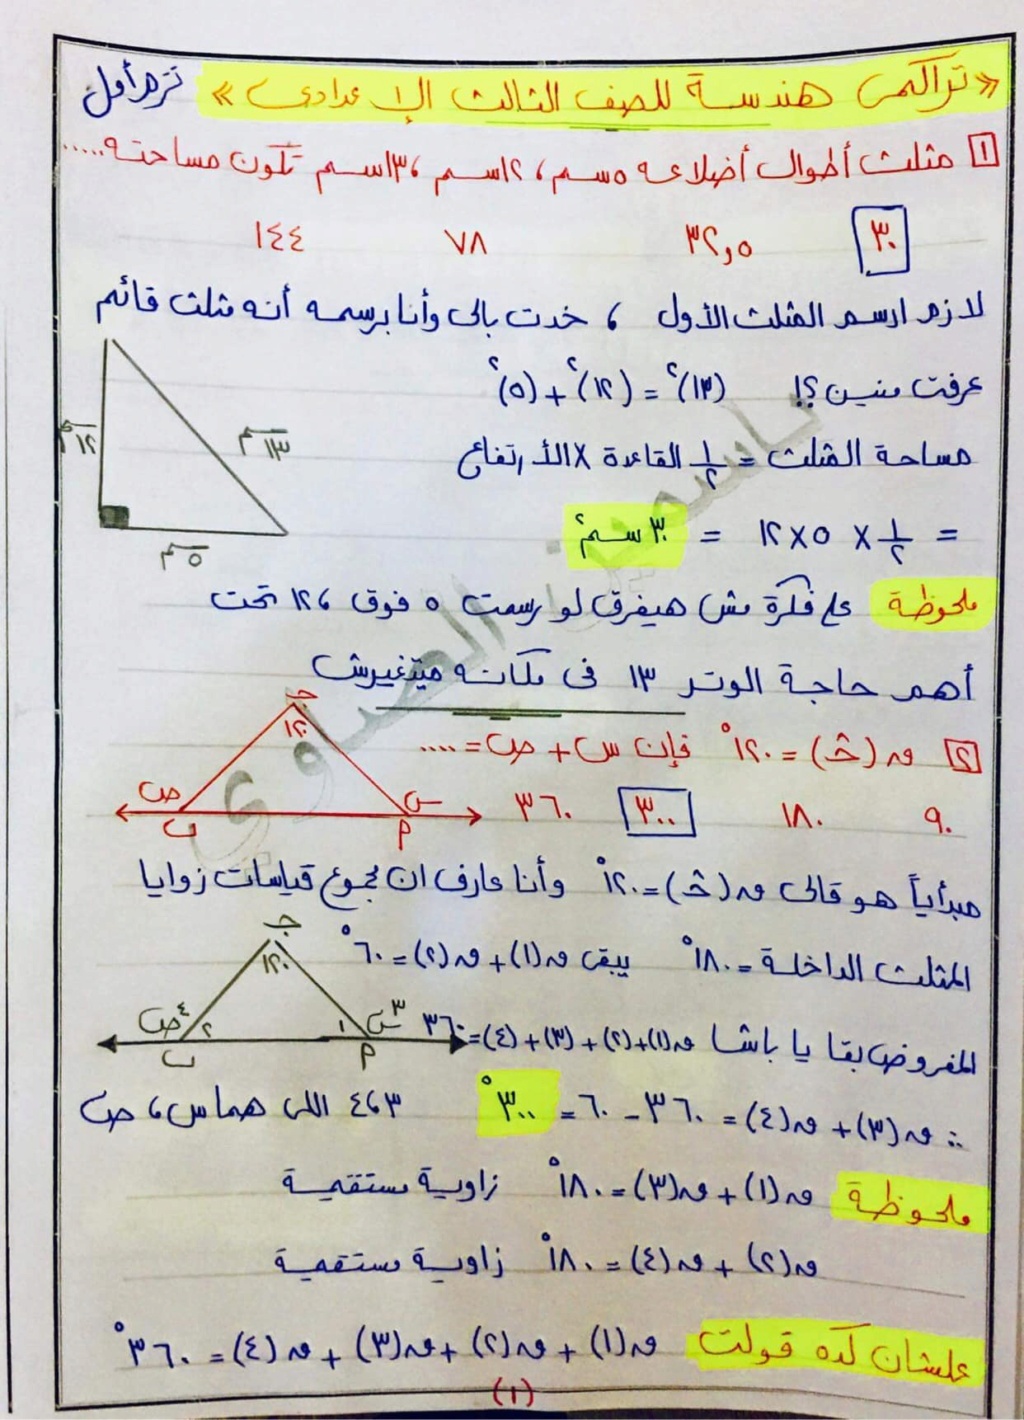 «تراكمى هندسة للصف الثالث الإعدادى» ترم أول
١ مثلث أطوال أضلاعه ٥سم، ١٢سم، ١٣سم تكون مساحته.....
٣٠ ٣٢,٥ ٧٨ ١٤٤
لازم ارسم المثلث الأول ، خدت بالى وأنا برسمه أنه مثلث قائم
عرفت منين ؟! (١٣)٢ = (١٢)٢ + (٥)٢
١٢سم
١٣سم
مساحة المثلث = ١/٢ القاعدة X الأرتفاع
= ١/٢ X ٥ X ١٢ = ٣٠ سم٢
٥سم
ملحوظة على فكرة مش هيفرق لو رسمت ٥ فوق ،١٢ تحت
أهم حاجة الوتر ١٣ فى مكانه ميتغيرش
ياسمين الصاوي
٢ ق(جـ) = ١٢٠° فإن س + ص = ....
جـ
١٢٠
ص س
ب أ
٩٠ ١٨٠ ٣٠٠ ٣٦٠
مبدأياً هو قالى ق(جـ) = ١٢٠° وأنا عارف ان مجموع قياسات زوايا
المثلث الداخلة = ١٨٠° يبقى ق(١) + ق(٢) = ٦٠°
جـ
١٢٠
ص ٤ ٢ ١ س ٣
ب أ
المفروض بقا يا باشا ق(١)+(٢)+(٣)+(٤)=٣٦٠
∴ ق(٣) + ق(٤) = ٣٦٠ - ٦٠ = ٣٠٠° ٣،٤ اللى هما س، ص
ملحوظة ق(١) + ق(٣) = ١٨٠° زاوية مستقمية
ق(٢) + ق(٤) = ١٨٠° زاوية مستقمية
علشان كده قولت ق(١) + ق(٢) + ق(٣) + ق(٤) = ٣٦٠°
(١)